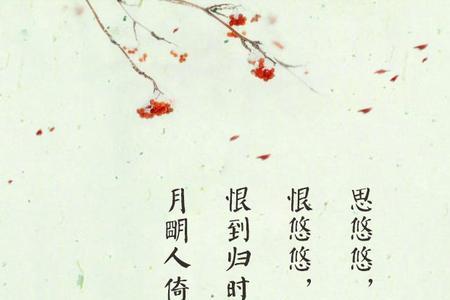 思悠悠，
恨悠悠，
恨到归时
月明人倚